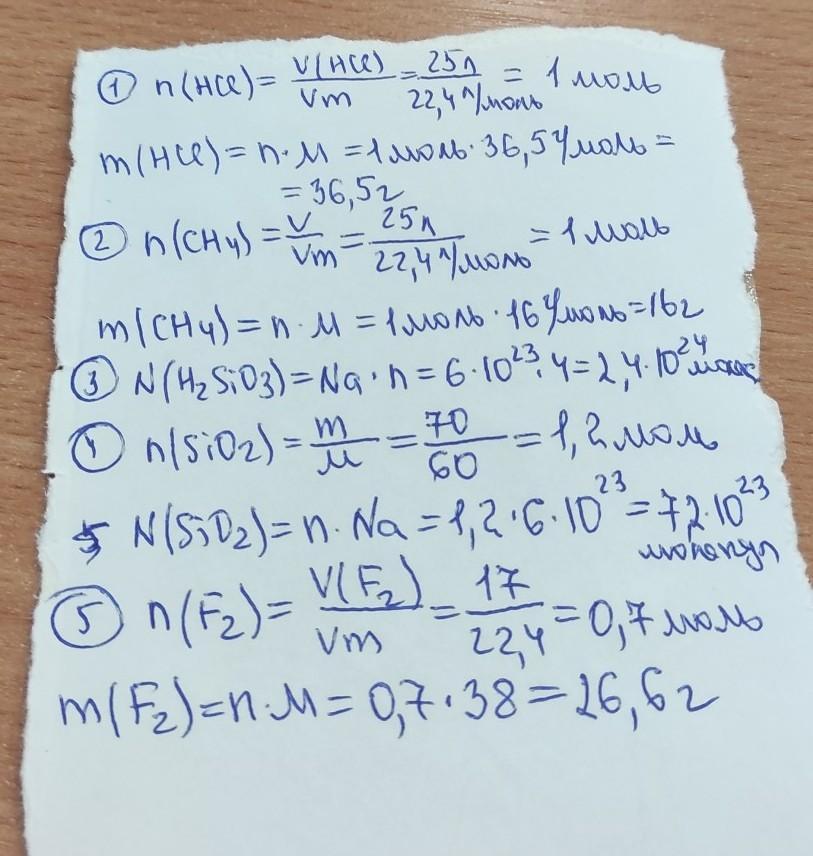 ① n(HCl) = V(HCl)/Vm = 25л/22,4 л/моль = 1 моль
m(HCl) = n·M = 1 моль · 36,5 г/моль =
= 36,5 г
② n(CH4) = V/Vm = 25л/22,4 л/моль = 1 моль
m(CH4) = n·M = 1 моль · 16 г/моль = 16 г
③ N(H2SiO3) = Na·n = 6·10^23·4 = 2,4·10^24
④ n(SiO2) = m/M = 70/60 = 1,2 моль
N(SiO2) = n·Na = 1,2·6·10^23 = 7,2·10^23
молекул
⑤ n(F2) = V(F2)/Vm = 17/22,4 = 0,7 моль
m(F2) = n·M = 0,7·38 = 26,6 г